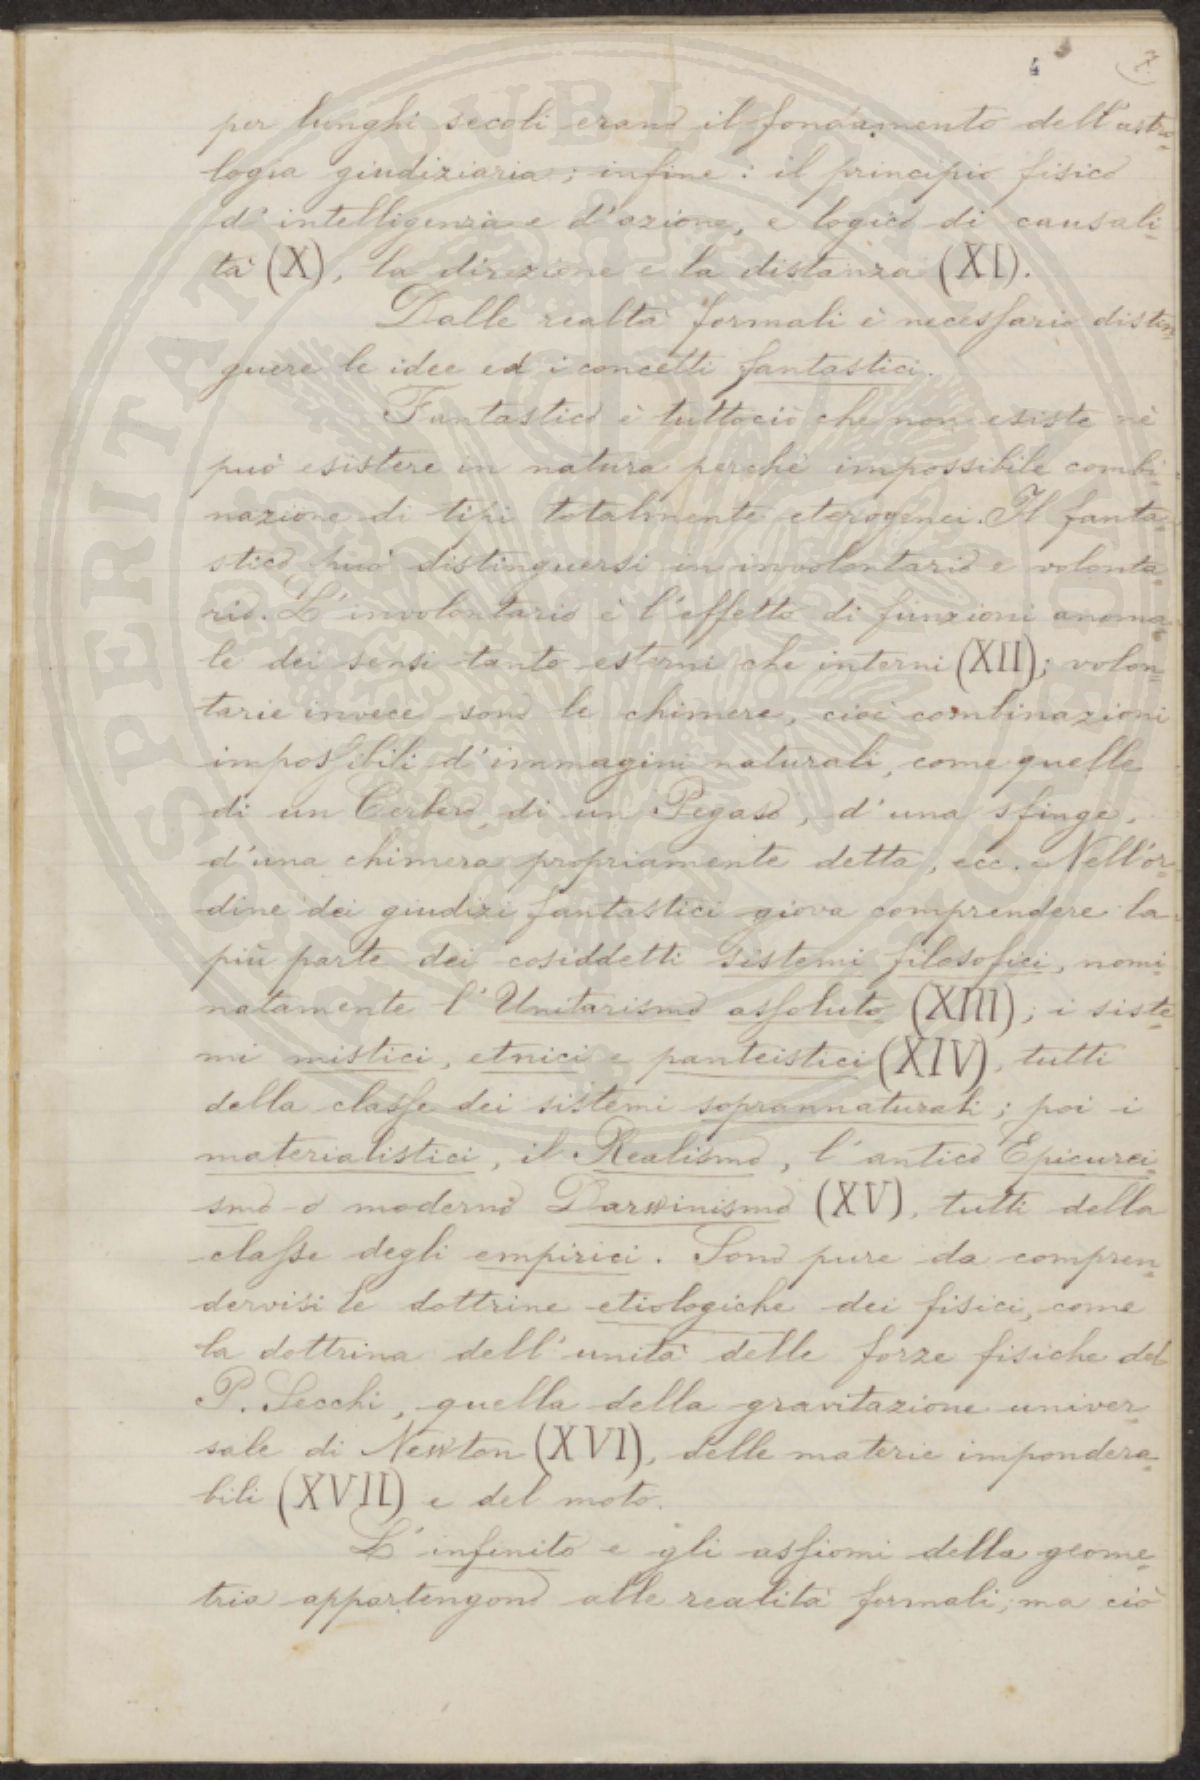 4
per lunghi secoli erano il fondamento dell'astro-
logia giudiziaria; infine: il principio fisico
d'intelligenza e d'azione, e logico di causali-
tà (X), la direzione e la distanza (XI).
Dalle realtà formali è necessario distin-
guere le idee ed i concetti fantastici.
Fantastico è tuttociò che non esiste nè
può esistere in natura perchè impossibile combi-
nazione di tipi totalmente eterogenei. Il fanta-
stico può distinguersi in involontario e volonta-
rio. L'involontario è l'effetto di funzioni anoma-
le dei sensi tanto esterni che interni (XII); volon-
tarie invece sono le chimere, cioè combinazioni
impossibili d'immagini naturali, come quelle
di un Cerbero, di un Pegaso, d'una sfinge,
d'una chimera propriamente detta, ecc. Nell'or-
dine dei giudizi fantastici giova comprendere la
più parte dei cosiddetti sistemi filosofici, nomi-
natamente l'Unitarismo assoluto (XIII); i siste-
mi mistici, etnici e panteistici (XIV), tutti
della classe dei sistemi soprannaturali; poi i
materialistici, il Realismo, l'antico Epicurei-
smo o moderno Darwinismo (XV), tutti della
classe degli empirici. Sono pure da compren-
dervisi le dottrine etiologiche dei fisici, come
la dottrina dell'unità delle forze fisiche del
P. Secchi, quella della gravitazione univer-
sale di Newton (XVI), delle materie impondera-
bili (XVII) e del moto.
L'infinito e gli assiomi della geome-
tria appartengono alle realità formali; ma ciò
PROSPERITATI PUBLICAE